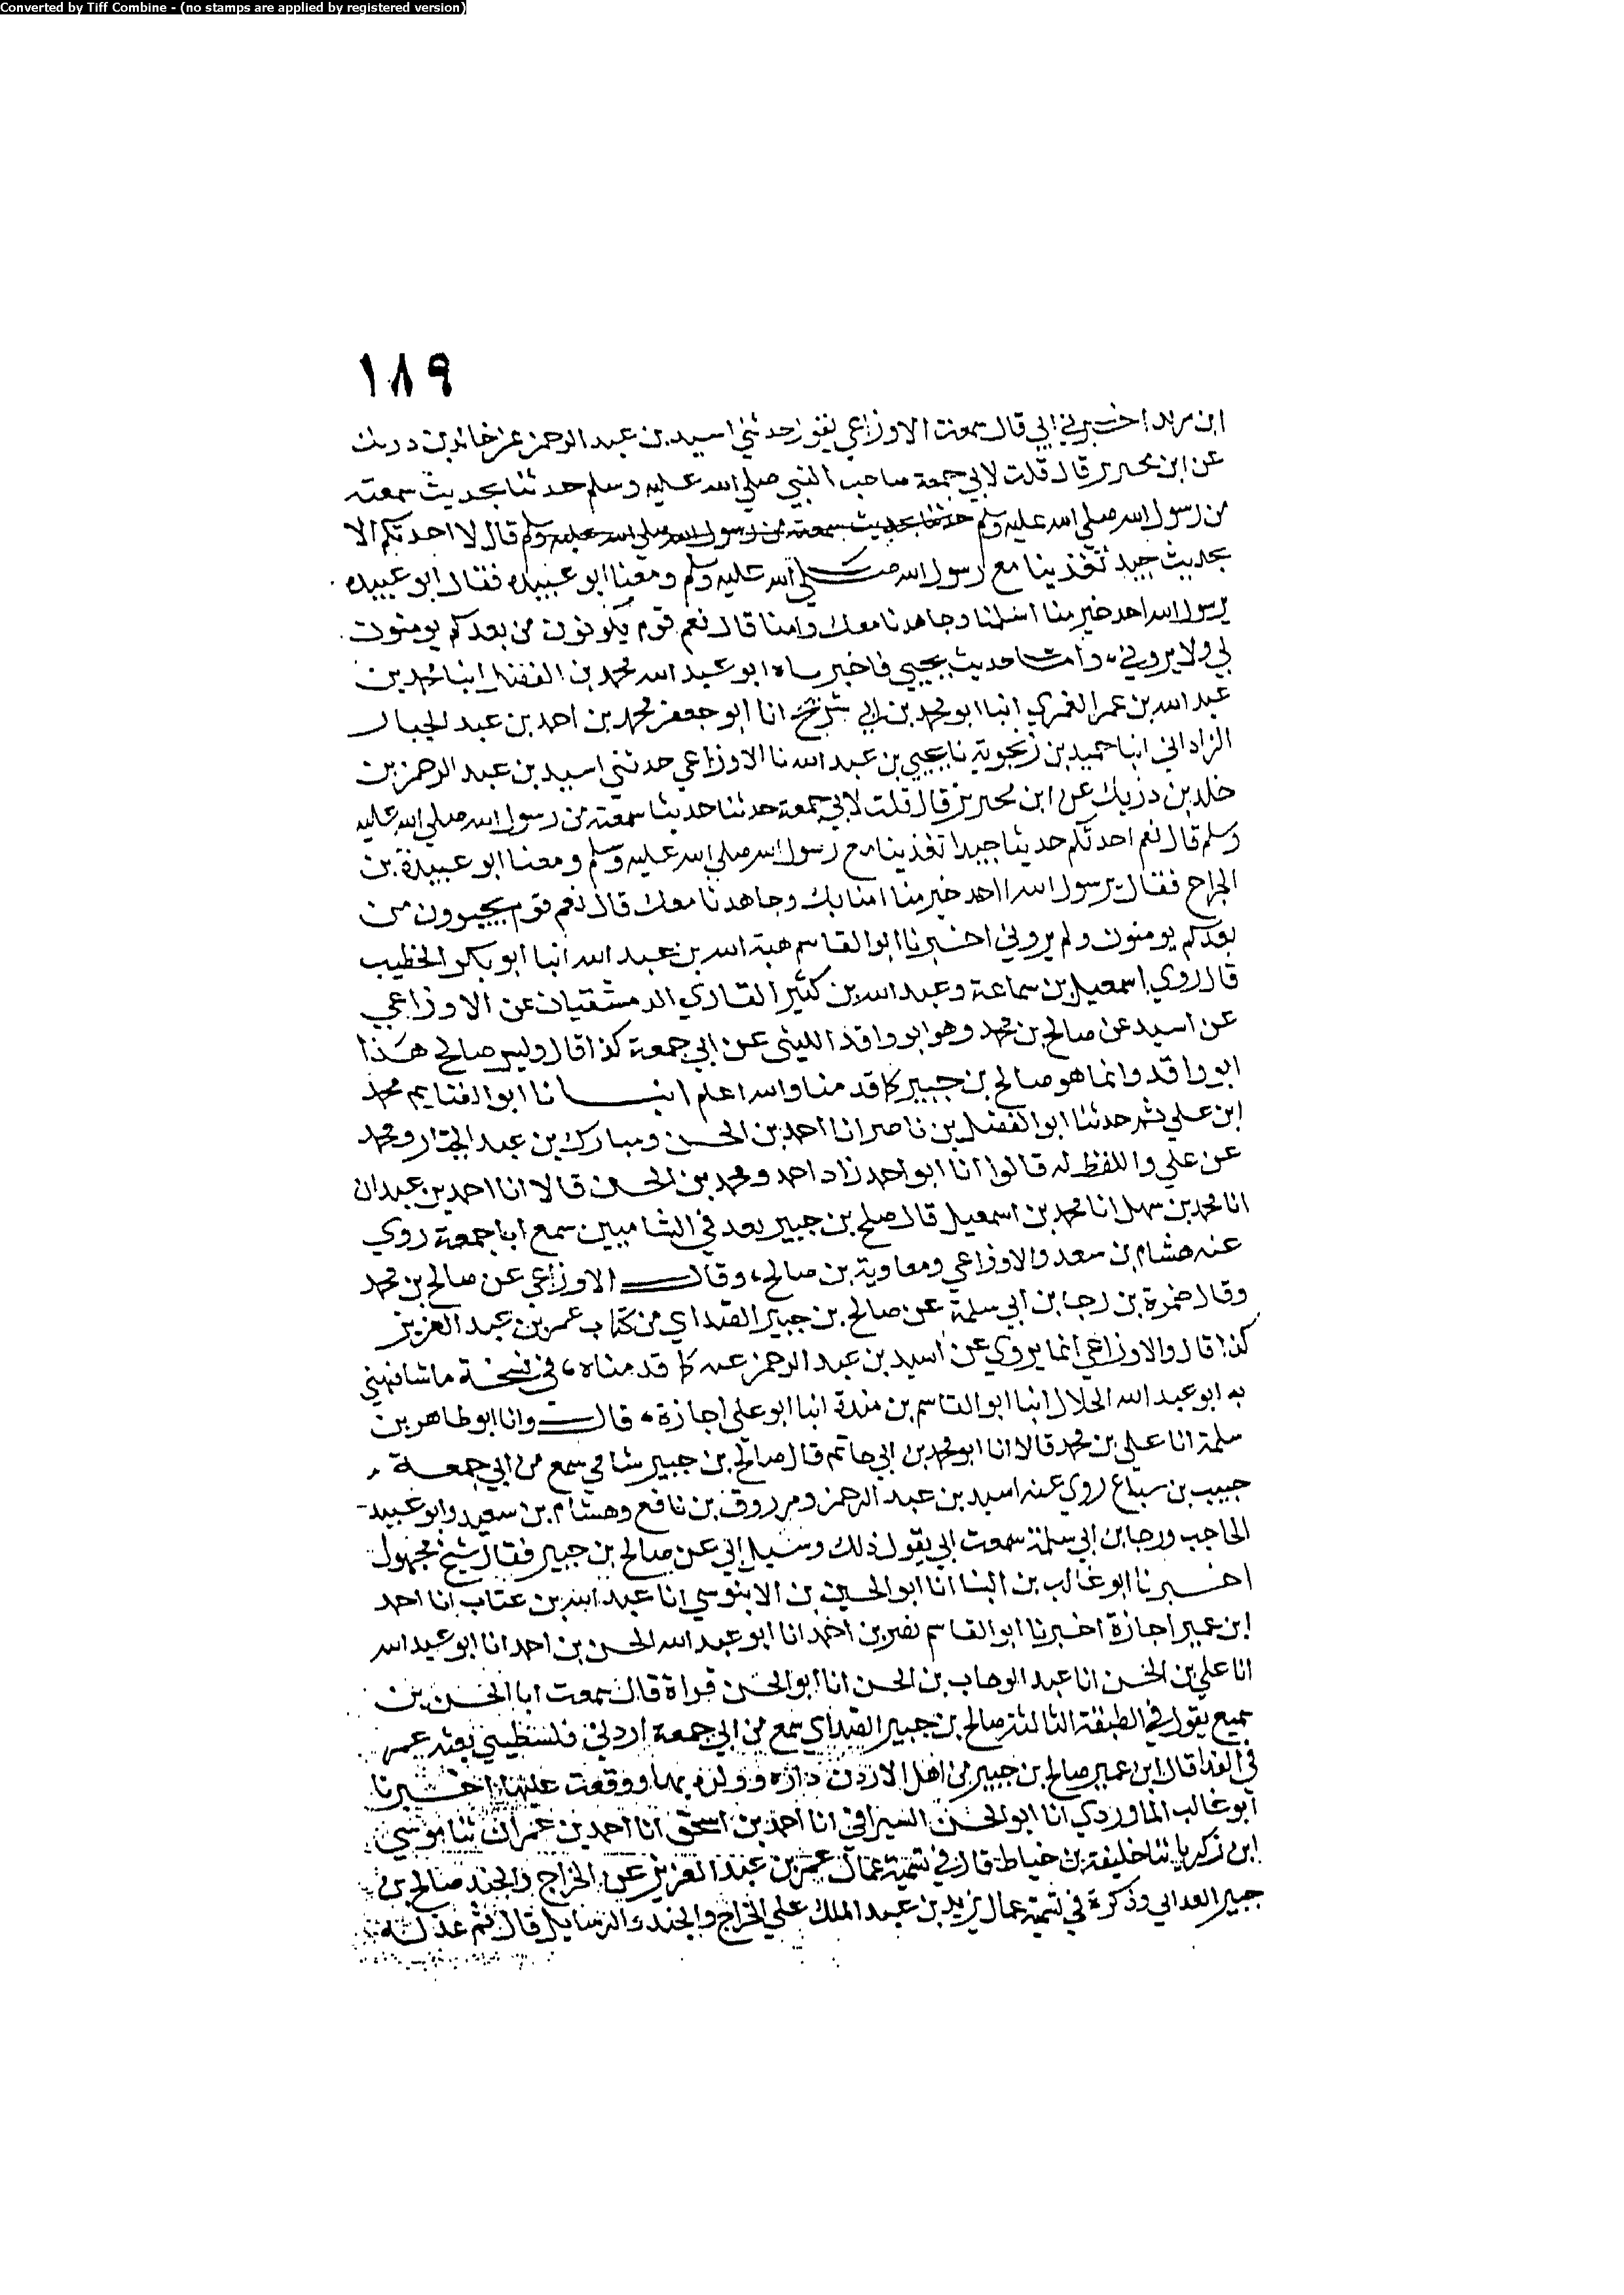 Converted by Tiff Combine - (no stamps are applied by registered version)
١٨٩
ابن مريد اخبرني ابي قال سمعت الاوزاعي يقول حدثني اسيد بن عبد الرحمن عن خالد بن دريك
عن ابن محيريز قال قلت لابي جمعة صاحب النبي صلي الله عليه وسلم حدثنا بحديث سمعته
من رسول الله صلي الله عليه وسلم حدثنا بحديث سمعته من رسول الله صلي الله عليه وسلم قال لا احدثكم الا
بحديث جيد تغذينا مع رسول الله صلي الله عليه وسلم ومعنا ابو عبيده فقال ابو عبيده
يرسول الله احد خير منا اسلمنا وجاهدنا معك وامنا قال نعم قوم يكونون من بعدكم يومنون
بي ولا يروني، وامـــا حديث يحيي فاخبرناه ابو عبد الله محمد بن الفضل انبا احمد بن
عبد الله بن عمر العمري انبا ابو محمد بن ابي شريح انا ابو جعفر محمد بن احمد بن عبد الجبار
الرذاني انبا حميد بن زنجوية نا يحيي بن عبد الله نا الاوزاعي حدثني اسيد بن عبد الرحمن بن
خلد بن دريك عن ابن محيريز قال قلت لابي جمعة حدثنا حديثا سمعته من رسول الله صلي الله عليه
وسلم قال نعم احدثكم حديثا جيدا تغذينا مع رسول الله صلي الله عليه وسلم ومعنا ابو عبيدة بن
الجراح فقال يرسول الله احد خير منا امنا بك وجاهدنا معك قال نعم قوم يجيوون من
بعدكم يومنون ولم يروني اخبرنا ابو القاسم هبة الله بن عبد الله انبا ابو بكر الخطيب
قال روي اسمعيل بن سماعة وعبد الله بن كثير القاري الدمشقيان عن الاوزاعي
عن اسيد عن صالح بن محمد وهو ابو واقد الليثي عن ابي جمعة كذا قال وليس صالح هذا
ابو واقد وانما هو صالح بن جبير كما قدمنا والله اعلم انبـــانا ابو الغنايم محمد
ابن علي ثم حدثنا ابو الفضل بن ناصر انا احمد بن الحسن ومبارك بن عبد الجبار ومحمد
عن علي واللفظ له قالوا انا ابو احمد زاد احمد ومحمد بن الحسن قالا انا احمد بن عبدان
انا محمد بن سهل انا محمد بن اسمعيل قال صلح بن جبير يعد في الشاميين سمع ابا جمعة روي
عنه هشام بن سعد والاوزاعي ومعاوية بن صالح، وقال الاوزاعي عن صالح بن محمد
وقال ضمرة بن رجا بن ابي سلمة عن صالح بن جبير الصداي من كتاب عمر بن عبد العزيز
كذا قال والاوزاعي انما يروي عن اسيد بن عبد الرحمن عنه كما قدمناه، في نسخة ما شافهني
به ابو عبد الله الخلال انبا ابو القاسم بن مندة انبا ابو علي اجازة، قال وانا ابو طاهر بن
سلمة انا علي بن محمد قالا انا ابو محمد بن ابي حاتم قال صالح بن جبير شامي سمع من ابي جمعة
حبيب بن سباع روي عنه اسيد بن عبد الرحمن ومرزوق بن نافع وهشام بن سعيد وابو عبيد
الحاجب ورجا بن ابي سلمة سمعت ابي يقول ذلك وسيل ابي عن صالح بن جبير فقال شيخ مجهول
اخبرنا ابو غالب بن البنا انا ابو الحسين بن الابنوسي انا عبد الله بن عتاب انا احمد
ابن عمير اجازة اخبرنا ابو القاسم نصر بن احمد انا ابو عبد الله الحسن بن احمد انا ابو عبد الله
انا علي بن الحسن انا عبد الوهاب بن الحسن انا ابو الحسن قراة قال سمعت ابا الحسن بن
سميع يقول في الطبقة الثالثة صالح بن جبير الصداي سمع من ابي جمعة اردني فلسطيني بعثه عمر
في الفدا قال ابن عمير صالح بن جبير من اهل الاردن داره وولده بها ووقعت عليها اخبرنا
ابو غالب الماوردي انا ابو الحسن السيرافي انا احمد بن اسحق انا احمد بن عمران ثنا موسي
ابن زكريا ثنا خليفة بن خياط قال في تسمية عمال عمر بن عبد العزيز عن الخراج والجند صالح بن
جبير الغداني وذكره في تسمية عمال يزيد بن عبد الملك علي الخراج والجند والرسايل قال ثم عزله